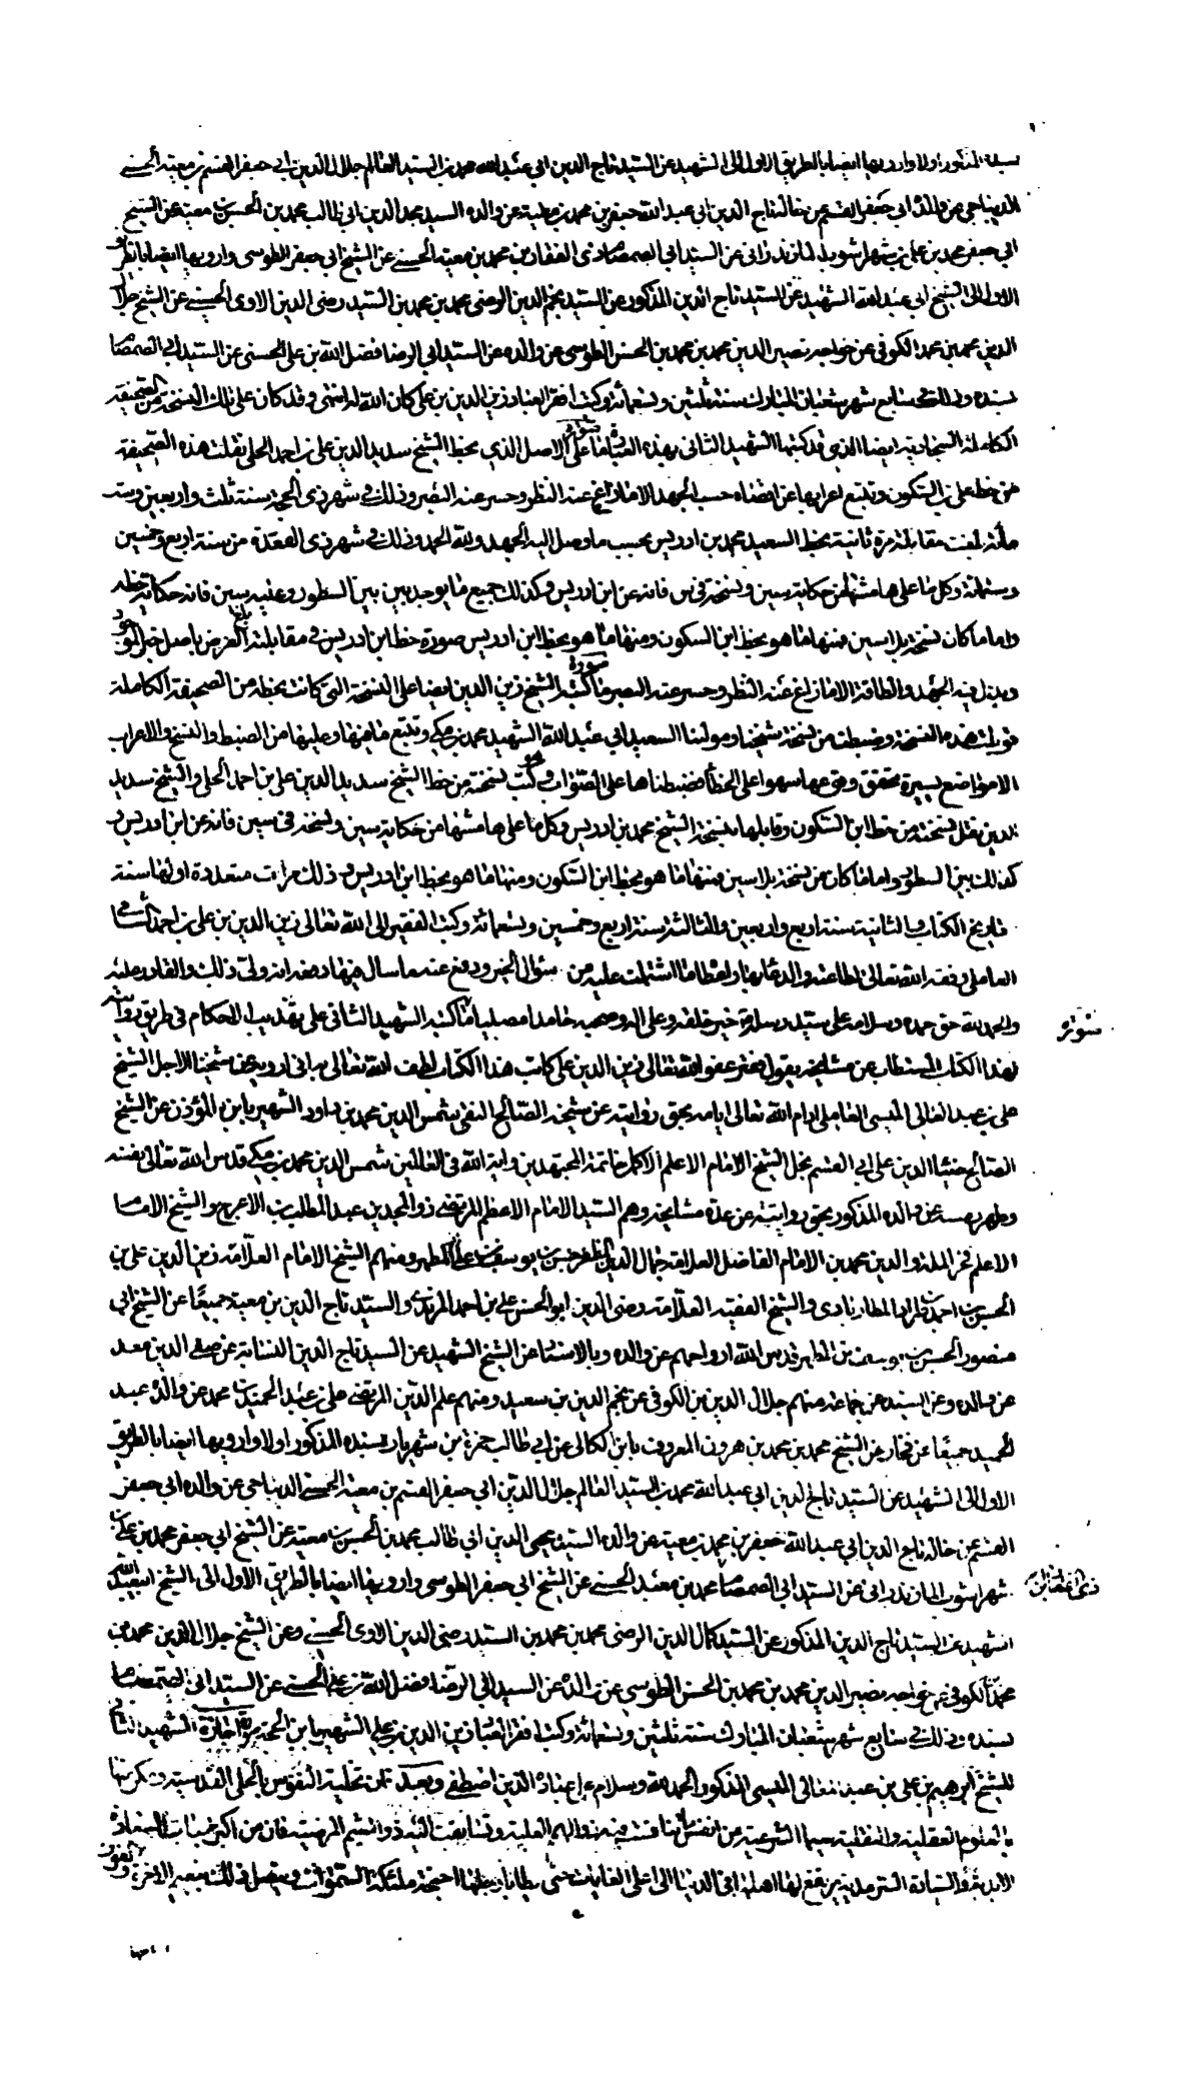 بسنده المذكور اولا وارويها ايضا بالطريق الاول الى الشهيد عن السيد تاج الدين ابي عبد الله محمد بن السيد العالم جلال الدين ابي جعفر القسم بن معية الحسني
الديباجي عن والده ابي جعفر القسم عن خاله تاج الدين ابي عبد الله جعفر بن محمد بن معية عن والده السيد مجد الدين ابي طالب محمد بن الحسن بن معية عن الشيخ
ابي جعفر محمد بن علي بن شهراشوب المازندراني عن السيد ابي الصمصام ذي الفقار بن محمد بن معبد الحسني عن الشيخ ابي جعفر الطوسي وارويها ايضا بالطريق
الاول الى الشيخ ابي عبد الله الشهيد عن السيد تاج الدين المذكور عن السيد نجم الدين الرضي محمد بن محمد بن السيد رضي الدين الاوي الحسيني عن الشيخ جلال
الدين محمد بن محمد الكوفي عن خواجه نصير الدين محمد بن محمد بن الحسن الطوسي عن والده عن السيد ابي الرضا فضل الله بن علي الحسني عن السيد ابي الصمصام
بسنده وذلك في سابع شهر شعبان المبارك سنة ثلثين وتسعمائة وكتب افقر العباد زين الدين بن علي كان الله له انتهى وقد كان على تلك النسخة من الصحيفة
الكاملة السجادية ايضا الذي قد كتبها الشهيد الثاني بهذه العبارة صورة ما على الاصل الذي بخط الشيخ سديد الدين علي بن احمد الحلي نقلت هذه الصحيفة
من خط علي بن السكون وتتبع اعرابها عن اقصاه حسب الجهد الا ما زاغ عنه النظر وحسر عنه البصر وذلك في شهر ذي الحجة سنة ثلث واربعين وست
مائة بلغت مقابلة مرة ثانية بخط السعيد محمد بن ادريس بحسب ما وصل اليه الجهد ولله الحمد وذلك في شهر ذي القعدة من سنة اربع وخمسين
وستمائة وكل ما على هامشها من حكاية سين ونسخة في س فانه عن ابن ادريس وكذلك جميع ما يوجد بين بين السطور وعليه سين فانه حكاية خطه
واما ما كان نسخة بلا سين فمنها ما هو بخط ابن السكون ومنها ما هو بخط ابن ادريس صورة خط ابن ادريس في مقابلته بلغ العرض باصل خبر الموجود
وبذل فيه الجهد والطاقة الا ما زاغ عنه النظر وحسر عنه البصر صورة ما كتبه الشيخ زين الدين ايضا على النسخة التي كانت بخطه من الصحيفة الكاملة
قوبلت هذه النسخة وضبطت من نسخة شيخنا ومولينا السعيد ابي عبد الله الشهيد محمد بن مكي وتتبع ما فيها وعليها من الضبط والنسخ والاعراب
الا مواضع يسيرة تحقق وقوعها سهوا على الخطأ فضبطناها على الصواب وكتب نسخته من خط الشيخ سديد الدين علي بن احمد الحلي والشيخ سديد
الدين نقل نسخته من خط ابن السكون وقابلها بنسخة الشيخ محمد بن ادريس وكل ما على هامشها من حكاية سين ونسخة في سين فانه عن ابن ادريس و
كذلك بين السطور واما ما كان من نسخة بلا سين فمنها ما هو بخط ابن السكون ومنها ما هو بخط ابن ادريس وذلك مرات متعددة اولها سنة
تاريخ الكتاب والثانية سنة اربع واربعين والثالثة سنة اربع وخمسين وتسعمائة وكتب الفقير الى الله تعالى زين الدين بن علي بن احمد الشامي
العاملي وفقه الله تعالى لطاعته والدعاء بها واعطاه ما اشتملت عليه من سؤال الخير ودفع عنه ما سال فيها دفعه انه ولي ذلك والقادر عليه
والحمد لله حق حمده وسلامه على سيد رسله وخير خلقه وعلى اله وصحبه حامدا مصليا ما كتبه الشهيد الثاني على تهذيب الاحكام في طريق روايته
صورة
لهذا الكتاب المستطاب عن مشايخه يقول مفتقر عفو الله تعالى زين الدين علي كاتب هذا الكتاب لطف الله تعالى به اني ارويه عن شيخنا الاجل الشيخ
علي بن عبد العالي الميسي العاملي ادام الله تعالى ايامه بحق روايته عن شيخه الصالح التقي شمس الدين محمد بن داود الشهير بابن المؤذن عن الشيخ
الصالح ضياء الدين علي ابي القسم نجل الشيخ الامام الاعلم الاكمل خاتمة المجتهدين واية الله في العالمين شمس الدين محمد بن مكي قدس الله تعالى نفسه
وطهر رمسه عن والده المذكور بحق روايته عن عدة مشايخه وهم السيد الامام الاعظم المرتضى ذو المجدين عبد المطلب بن الاعرج والشيخ الامام
الاعلم فخر الملة والدين محمد بن الامام الفاضل العلامة جمال الدين المظفر حسن بن يوسف بن علي المطهر ومنهم الشيخ الامام العلامة زين الدين علي بن
الحسن بن احمد بن طراد المطارابادي والشيخ الفقيه العلامة رضي الدين ابو الحسن علي بن احمد المزيدي والسيد تاج الدين بن معية جميعا عن الشيخ ابي
منصور الحسن بن يوسف بن المطهر قدس الله ارواحهم عن والده وبالاسناد عن الشيخ الشهيد عن السيد تاج الدين النسابة عن صفي الدين معد
عن والده وعن السيد عن جماعة منهم جلال الدين بن الكوفي عن نجم الدين بن سعيد ومنهم علم الدين المرتضى علي بن عبد الحميد بن محمد عن والده عبد
الحميد جميعا عن فخار عن الشيخ محمد بن محمد بن هرون المعروف بابن الكالي عن ابي طالب حمزة بن شهريار بسنده المذكور اولا وارويها ايضا بالطريق
الاول الى الشهيد عن السيد تاج الدين ابي عبد الله محمد بن السيد العالم جلال الدين ابي جعفر القسم بن معية الحسني الديباجي عن والده ابي جعفر
القسم عن خاله تاج الدين ابي عبد الله جعفر بن محمد بن معية عن والده السيد مجد الدين ابي طالب محمد بن الحسن بن معية عن الشيخ ابي جعفر محمد بن علي بن
شهراشوب المازندراني عن السيد ابي الصمصام محمد بن معبد الحسني عن الشيخ ابي جعفر الطوسي وارويها ايضا بالطريق الاول الى الشيخ ابي عبد الله
ذي الفقار بن
الشهيد عن السيد تاج الدين المذكور عن السيد كمال الدين الرضي محمد بن محمد بن السيد رضي الدين الاوي الحسيني وعن الشيخ جلال الدين محمد بن
محمد الكوفي عن خواجه نصير الدين محمد بن محمد بن الحسن الطوسي عن والده عن السيد ابي الرضا فضل الله بن علي الحسني عن السيد ابي الصمصام
بسنده وذلك في سابع شهر شعبان المبارك سنة ثلثين وتسعمائة وكتب افقر العباد زين الدين بن علي الشهير بابن الحجة صورة اجازة الشهيد الثاني
للشيخ ابرهيم بن علي بن عبد العالي الميسي المذكور الحمد لله وسلام على عباده الذين اصطفى وبعد فان تحلية النفوس بالحلي القدسية وتكريمها
بالعلوم العقلية والنقلية سيما الشرعية من انفس ما تنافست فيه ذوالهم العلية وتسابقت اليه ذو الشيم المرضية فان من اكبر غايات السعادة
الابدية والسيادة السرمدية يرتفع لها اهله في الدنيا الى اعلى الغايات حتى يطاؤا بارجلهم اجنحة ملئكة السموات ويتصل ذلك بنعيم الاخرة وتفوز